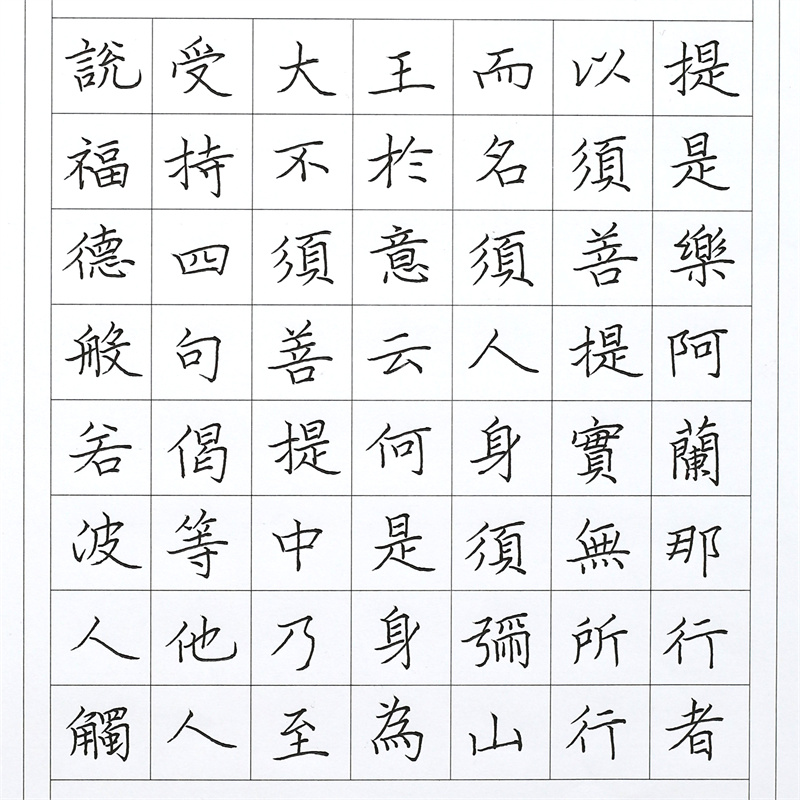 提是樂阿蘭那行者
以須菩提實無所行
而名須人身須彌山
王於意云何是身為
大不須菩提中乃至
受持四句偈等他人
說福德般若波人觸